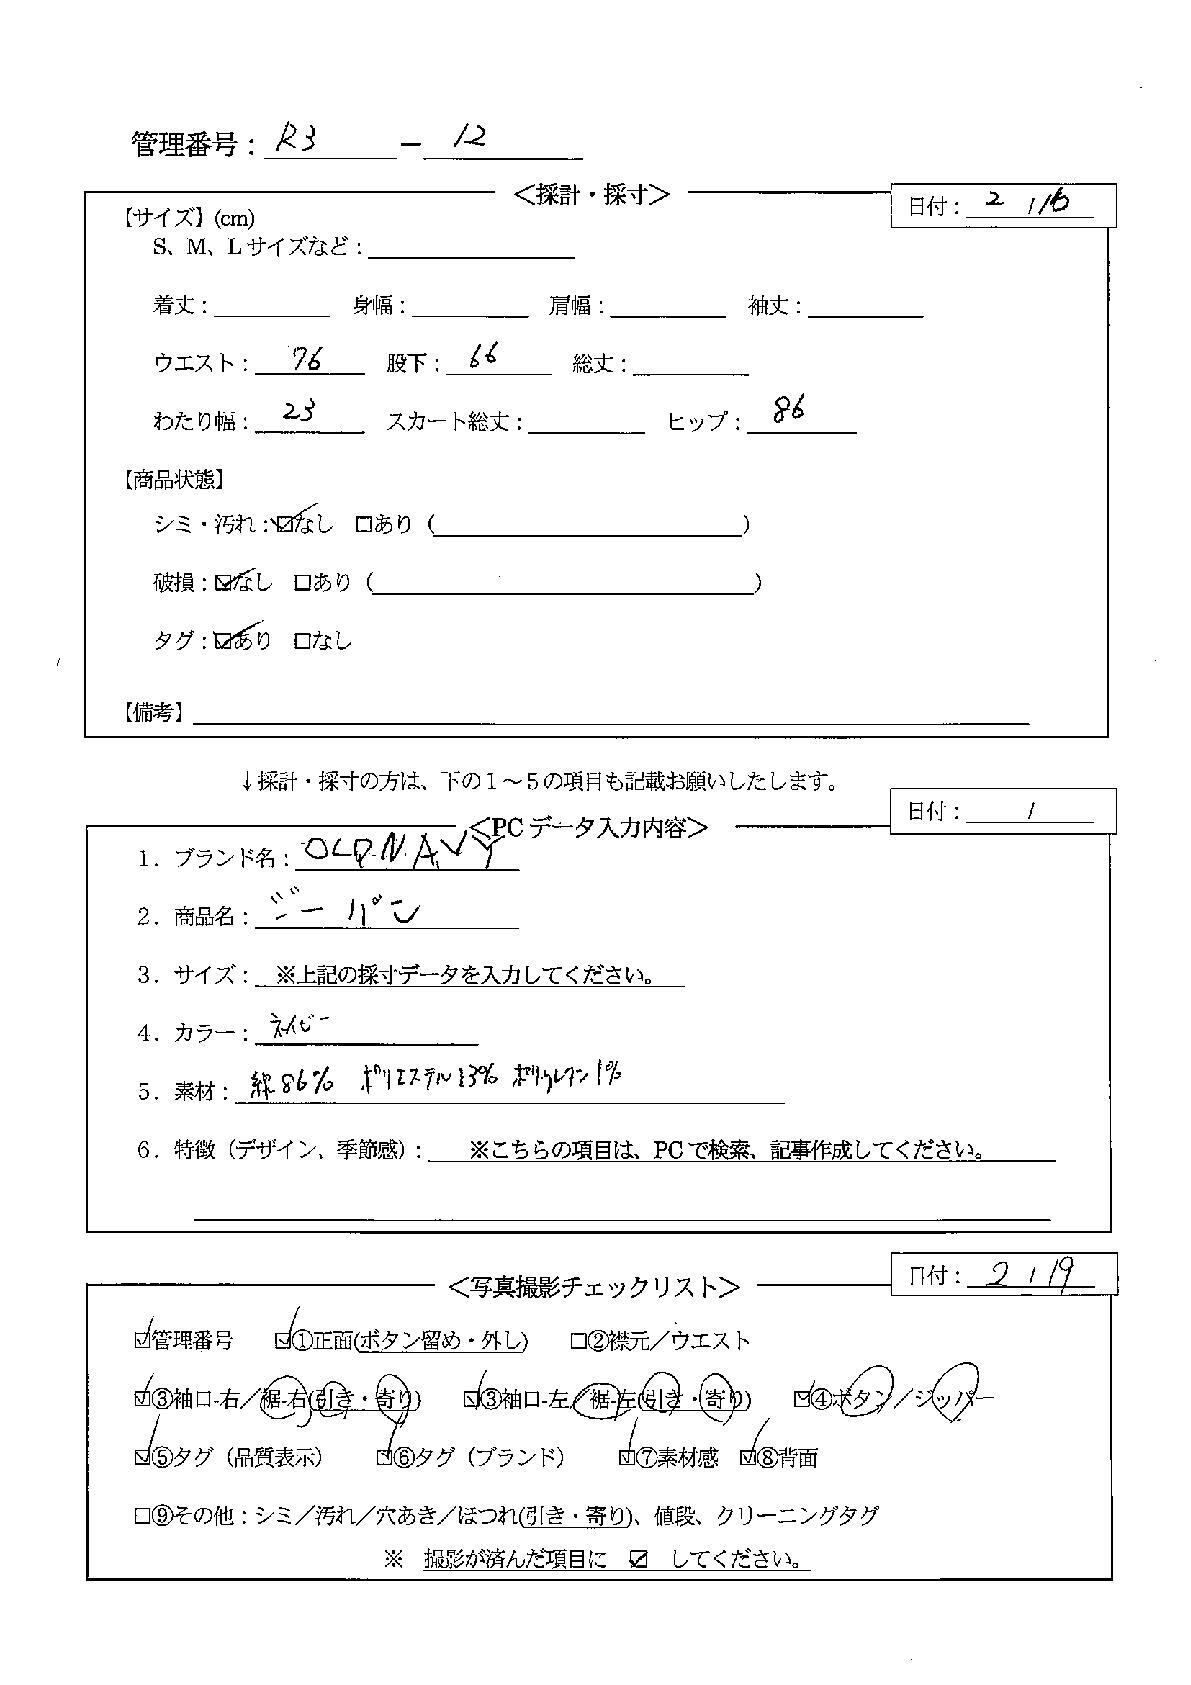 管理番号：R3 － 12
＜採計・採寸＞ 日付： 2 / 16
【サイズ】(cm)
S、M、Lサイズなど：
着丈： 身幅： 肩幅： 袖丈：
ウエスト： 76 股下： 66 総丈：
わたり幅： 23 スカート総丈： ヒップ： 86
【商品状態】
シミ・汚れ：☑なし □あり（ ）
破損：☑なし □あり（ ）
タグ：☑あり □なし
【備考】
↓採計・採寸の方は、下の１～５の項目も記載お願いしたします。
日付： /
＜PCデータ入力内容＞
1．ブランド名：OLD NAVY
2．商品名：ジーパン
3．サイズ： ※上記の採寸データを入力してください。
4．カラー：ネイビー
5．素材：綿86% ポリエステル13% ポリウレタン1%
6．特徴（デザイン、季節感）： ※こちらの項目は、PCで検索、記事作成してください。
＜写真撮影チェックリスト＞ 日付： 2 / 19
☑管理番号 ☑①正面(ボタン留め・外し) □②襟元／ウエスト
☑③袖口-右／裾-右(引き・寄り) ☑③袖口-左／裾-左(引き・寄り) ☑④ボタン／ジッパー
☑⑤タグ（品質表示） ☑⑥タグ（ブランド） ☑⑦素材感 ☑⑧背面
□⑨その他：シミ／汚れ／穴あき／ほつれ(引き・寄り)、値段、クリーニングタグ
※ 撮影が済んだ項目に ☑ してください。